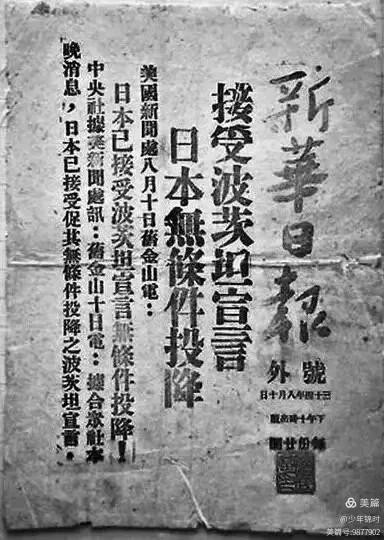 新華日報
號外
三十四年八月十日
下午十時出版
每份廿圓
接受波茨坦宣言
日本無條件投降
美國新聞處八月十日舊金山電：
日本已接受波茨坦宣言無條件投降！
中央社據美新聞處訊：舊金山十日電：據合衆社本
晚消息，日本已接受促其無條件投降之波茨坦宣言。
美篇
@少年锦时
美篇号:9877902